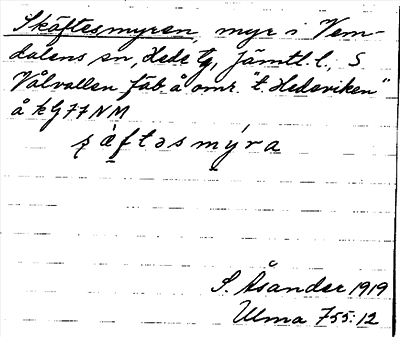 Skäftesmyren, myr i Vem-
dalens sn, Hede tg, Jämtl. l., S
Välvallen fäb. å omr. "t. Hedeviken"
å kG77NM
ʂäftəsmýra
S. Åsander 1919
Ulma 755:12